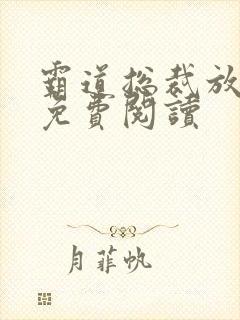 霸道总裁放
免費閱讀
月菲帆